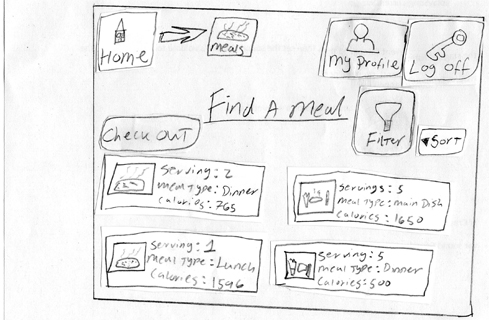 Home
meals
My Profile
Log Off
Find A Meal
Check Out
Filter
Sort
Serving: 2
meal Type: Dinner
Calories: 765
Servings: 5
meal Type: main Dish
Calories: 1650
Serving: 1
Meal Type: Lunch
Calories: 1596
Serving: 5
Meal Type: Dinner
Calories: 500